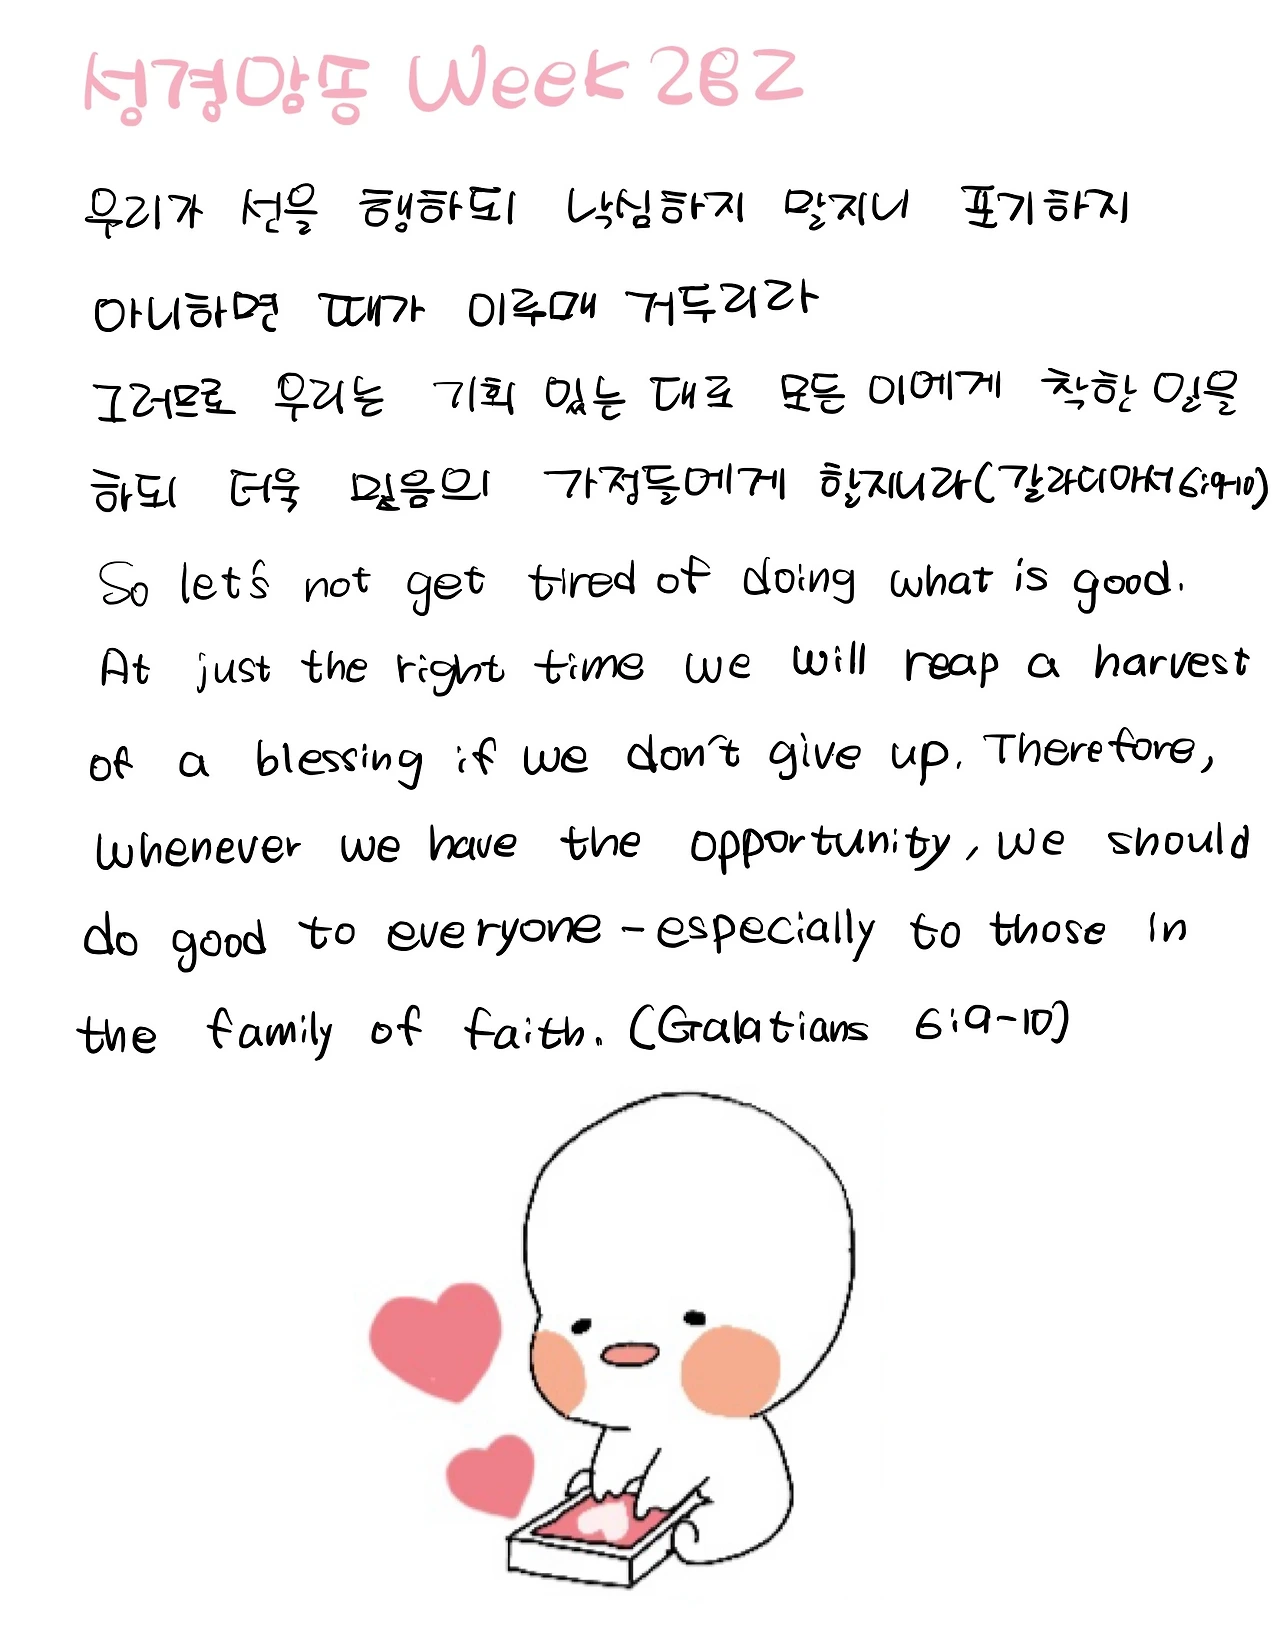 성경암송 Week 282
우리가 선을 행하되 낙심하지 말지니 포기하지
아니하면 때가 이루매 거두리라
그러므로 우리는 기회 있는 대로 모든 이에게 착한 일을
하되 더욱 믿음의 가정들에게 할지니라(갈라디아서 6:9-10)
So let's not get tired of doing what is good.
At just the right time we will reap a harvest
of a blessing if we don't give up. Therefore,
whenever we have the opportunity, we should
do good to everyone - especially to those in
the family of faith. (Galatians 6:9-10)